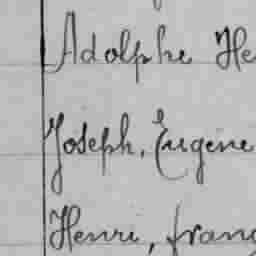 Adolphe He
Joseph, Eugène
Henri, franç